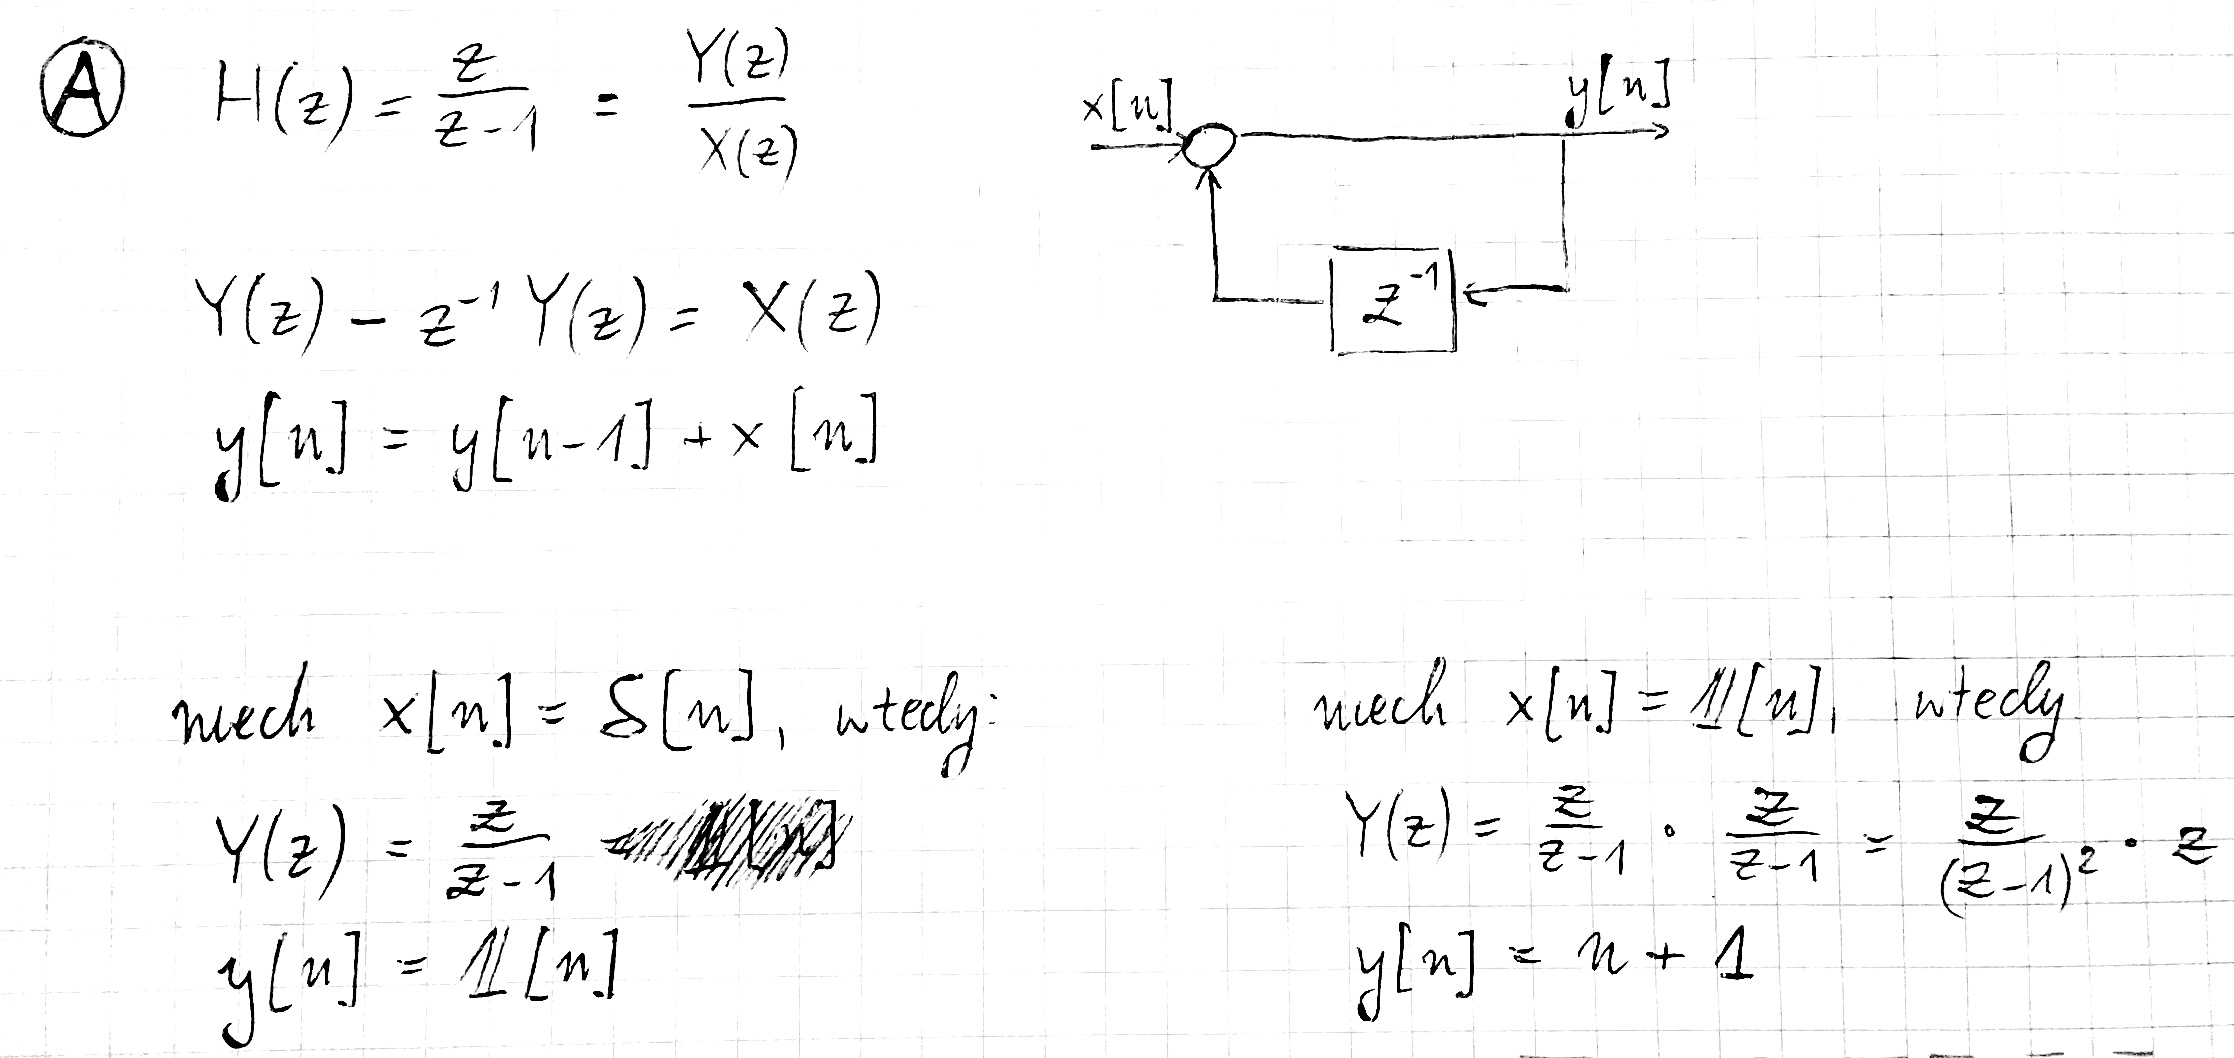 A H(z) = z/(z-1) = Y(z)/X(z)
x[n] y[n]
z⁻¹
Y(z) - z⁻¹ Y(z) = X(z)
y[n] = y[n-1] + x[n]
niech x[n] = δ[n], wtedy:
Y(z) = z/(z-1)
y[n] = 𝟙[n]
niech x[n] = 𝟙[n], wtedy
Y(z) = z/(z-1) · z/(z-1) = z/(z-1)² · z
y[n] = n + 1